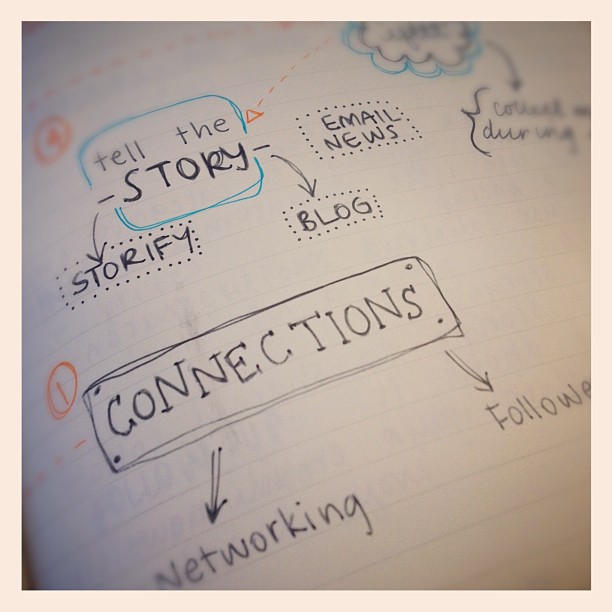 4
tell the
-STORY-
EMAIL
NEWS
BLOG
STORIFY
during
1
CONNECTIONS
Followe
Networking